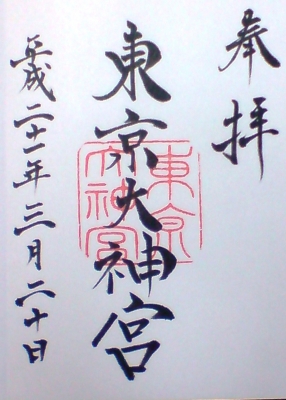 奉拝
東京大神宮
東京大神宮
平成二十一年三月二十日